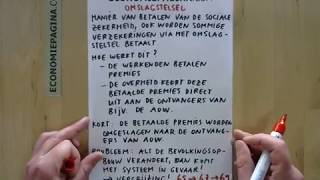 ECONOMIEPAGINA.COM
OMSLAGSTELSEL
MANIER VAN BETALEN VAN DE SOCIALE
ZEKERHEID, OOK WORDEN SOMMIGE
VERZEKERINGEN VIA HET OMSLAG-
STELSEL BETAALT
HOE WERKT DIT?
- DE WERKENDEN BETALEN
PREMIES
- DE OVERHEID KEERT DEZE
BETAALDE PREMIES DIRECT
UIT AAN DE ONTVANGERS VAN
BIJV. DE AOW.
KORT: DE BETAALDE PREMIES WORDEN
OMGESLAGEN NAAR DE ONTVAN-
GERS VAN AOW
PROBLEEM: ALS DE BEVOLKINGSOP-
BOUW VERANDERT, DAN KOMT
HET SYSTEEM IN GEVAAR!
VERGRIJZING! 65 → 67 → 69